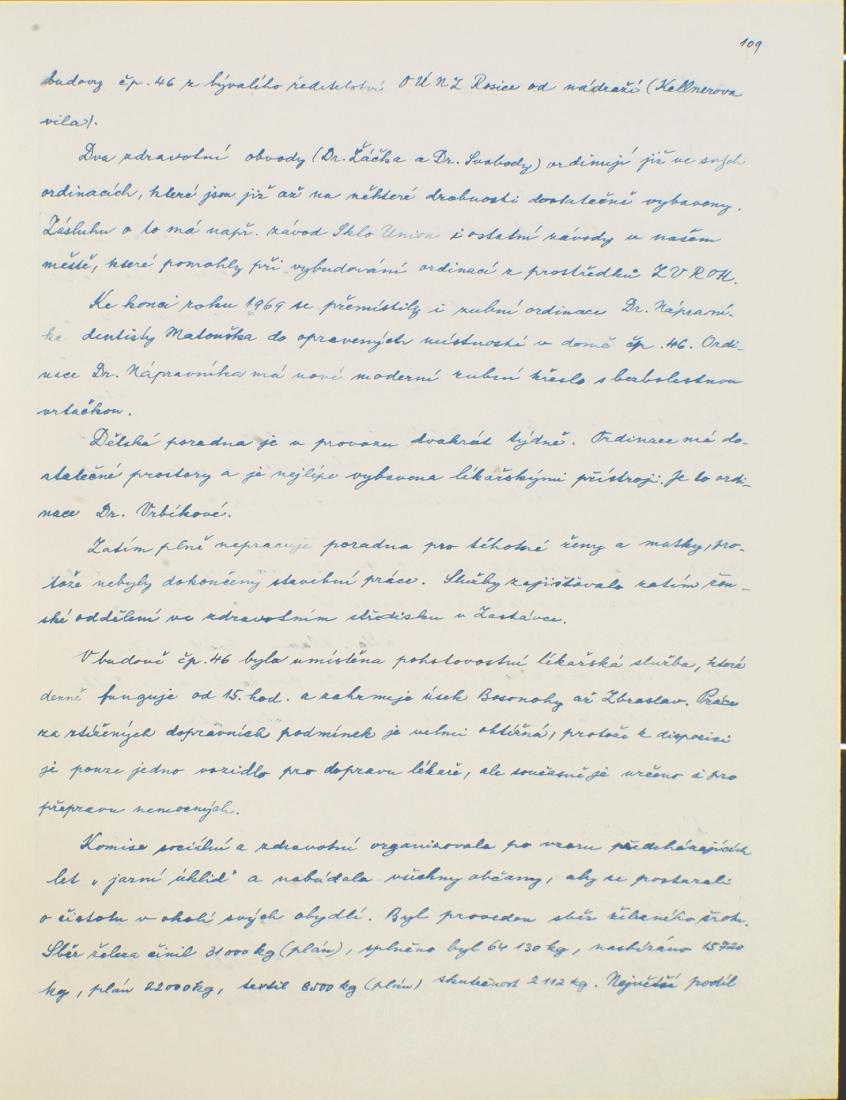 109
budovy čp. 46 z bývalého ředitelství OÚNZ Rosice od nádraží (Kellnerova
vila).
Dva zdravotní obvody (Dr. Žáčka a Dr. Svobody) ordinují již ve svých
ordinacích, které jsou již až na některé drobnosti dostatečně vybaveny.
Zásluhu o to má např. závod Sklo Union i ostatní závody v našem
městě, které pomohly při vybudování ordinací z prostředků ZVROH.
Ke konci roku 1969 se přemístily i zubní ordinace Dr. Nápravní-
ka dentisty Matouška do opravených místností v domě čp. 46. Ordi-
nace Dr. Nápravníka má nové moderní zubní křeslo s bezbolestnou
vrtačkou.
Dětská poradna je v provozu dvakrát týdně. Ordinace má do-
statečné prostory a je nejlépe vybavena lékařskými přístroji. Je to ordi-
nace Dr. Vrbíkové.
Zatím plně nepracuje poradna pro těhotné ženy a matky, pro-
tože nebyly dokončeny stavební práce. Služby zajišťovalo zatím žen-
ské oddělení ve zdravotním středisku v Zastávce.
V budově čp. 46 byla umístěna pohotovostní lékařská služba, která
denně funguje od 15. hod. a zahrnuje úsek Bosonohy až Zbraslav. Práce
za ztížených dopravních podmínek je velmi obtížná, protože k disposici
je pouze jedno vozidlo pro dopravu lékaře, ale současně je určeno i pro
přepravu nemocných.
Komise sociální a zdravotní organisovala po vzoru předcházejících
let „jarní úklid" a nabádala všechny občany, aby se postarali
o čistotu v okolí svých obydlí. Byl proveden sběr železného šrotu.
Sběr železa činil 31000 kg (plán), splněno byl 64 130 kg, nasbíráno 15720
kg, plán 22000 kg, textil 8500 kg (plán) skutečnost 2112 kg. Největší podíl